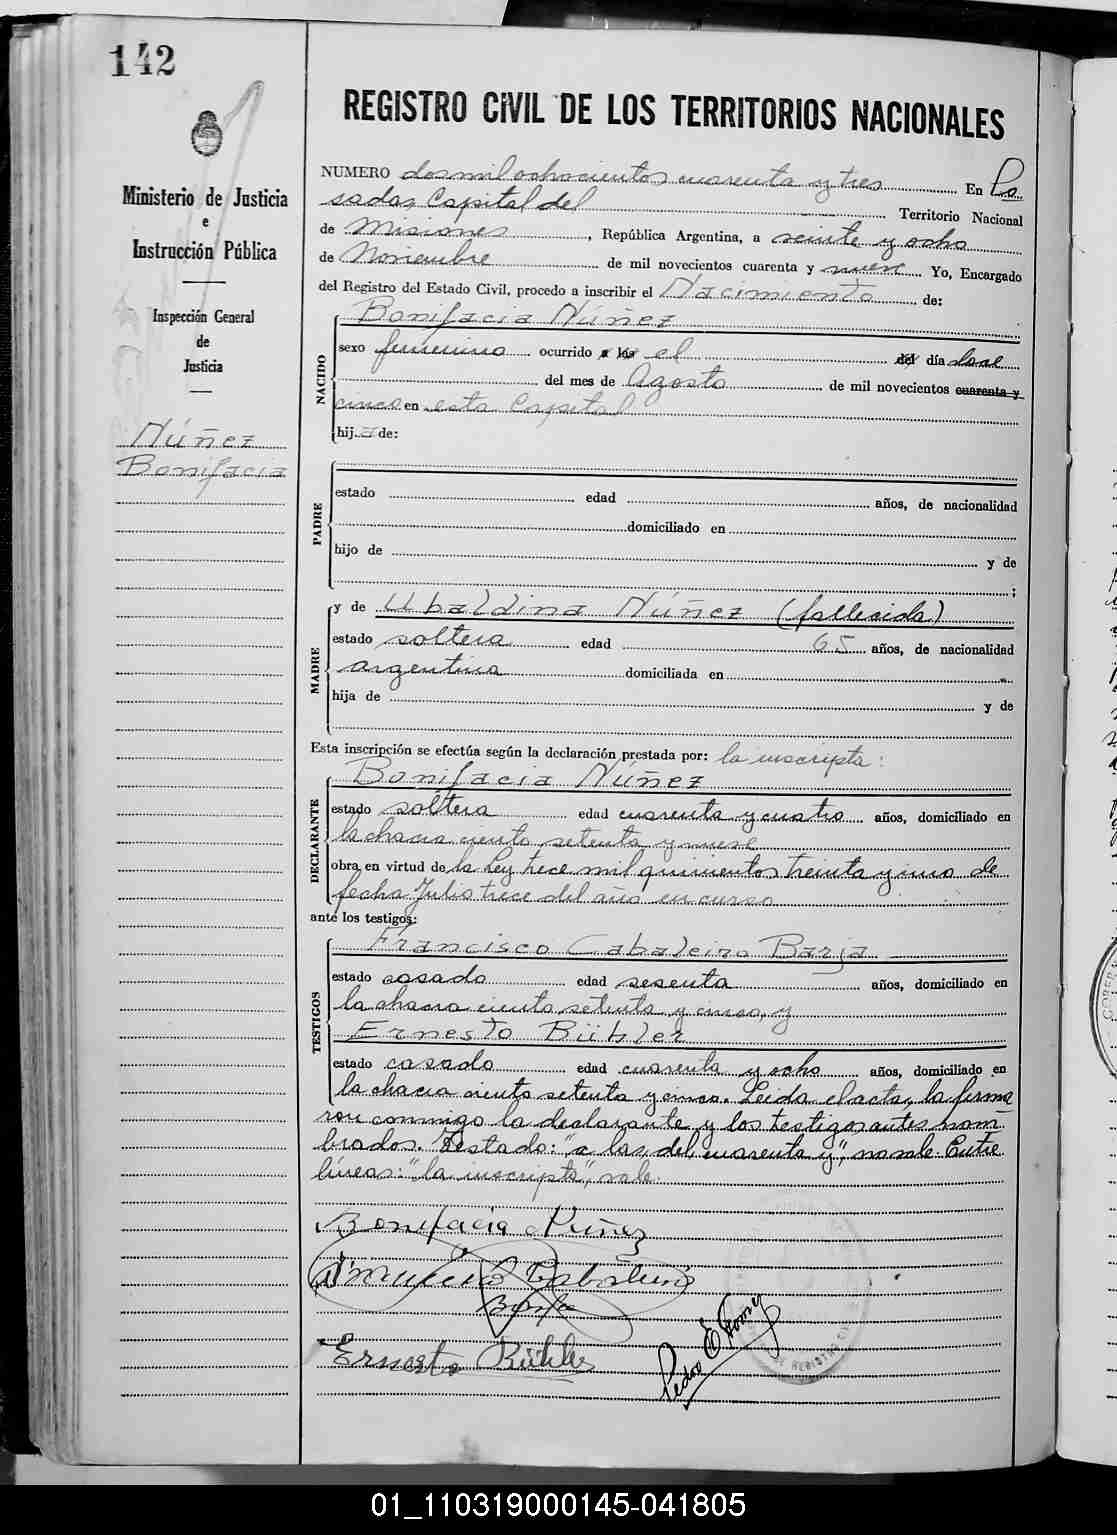 142
Ministerio de Justicia
e
Instrucción Pública
Inspección General
de
Justicia
Núñez
Bonifacia
REGISTRO CIVIL DE LOS TERRITORIOS NACIONALES
NUMERO dos mil ochocientos cuarenta y tres En Po
sadas, Capital del Territorio Nacional
de Misiones, República Argentina, a veinte y ocho
de Noviembre de mil novecientos cuarenta y nueve Yo, Encargado
del Registro del Estado Civil, procedo a inscribir el Nacimiento de:
NACIDO
Bonifacia Núñez
sexo femenino ocurrido a las el del día doce
del mes de Agosto de mil novecientos cuarenta y
cinco en esta Capital
hija de:
PADRE
estado edad años, de nacionalidad
domiciliado en
hijo de y de
;
MADRE
y de Ubaldina Núñez (fallecida)
estado soltera edad 65 años, de nacionalidad
argentina domiciliada en
hija de y de
Esta inscripción se efectúa según la declaración prestada por: la inscripta:
DECLARANTE
Bonifacia Núñez
estado soltera edad cuarenta y cuatro años, domiciliado en
la chacra ciento setenta y nueve
obra en virtud de la Ley trece mil quinientos treinta y uno de
fecha Julio trece del año en curso
ante los testigos:
TESTIGOS
Francisco Cabaleiro Barja
estado casado edad sesenta años, domiciliado en
la chacra ciento setenta y cinco, y
Ernesto Bühler
estado casado edad cuarenta y ocho años, domiciliado en
la chacra ciento setenta y cinco. Leida el acta, la firma
ron conmigo la declarante y los testigos antes nom
brados. Testado: "a las, del, cuarenta y", no vale. Entre
líneas: "la inscripta", vale.
Bonifacia Nuñez
Francisco Cabaleiro
Barja
Ernesto Bühler
Pedro E
01_110319000145-041805